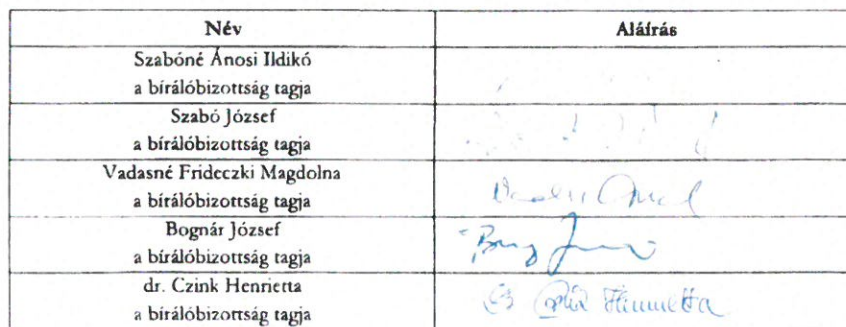 Név Aláírás
Szabóné Ánosi Ildikó
a bírálóbizottság tagja
Szabó József
a bírálóbizottság tagja
Vadasné Frideczki Magdolna
a bírálóbizottság tagja
Bognár József
a bírálóbizottság tagja
dr. Czink Henrietta
a bírálóbizottság tagja